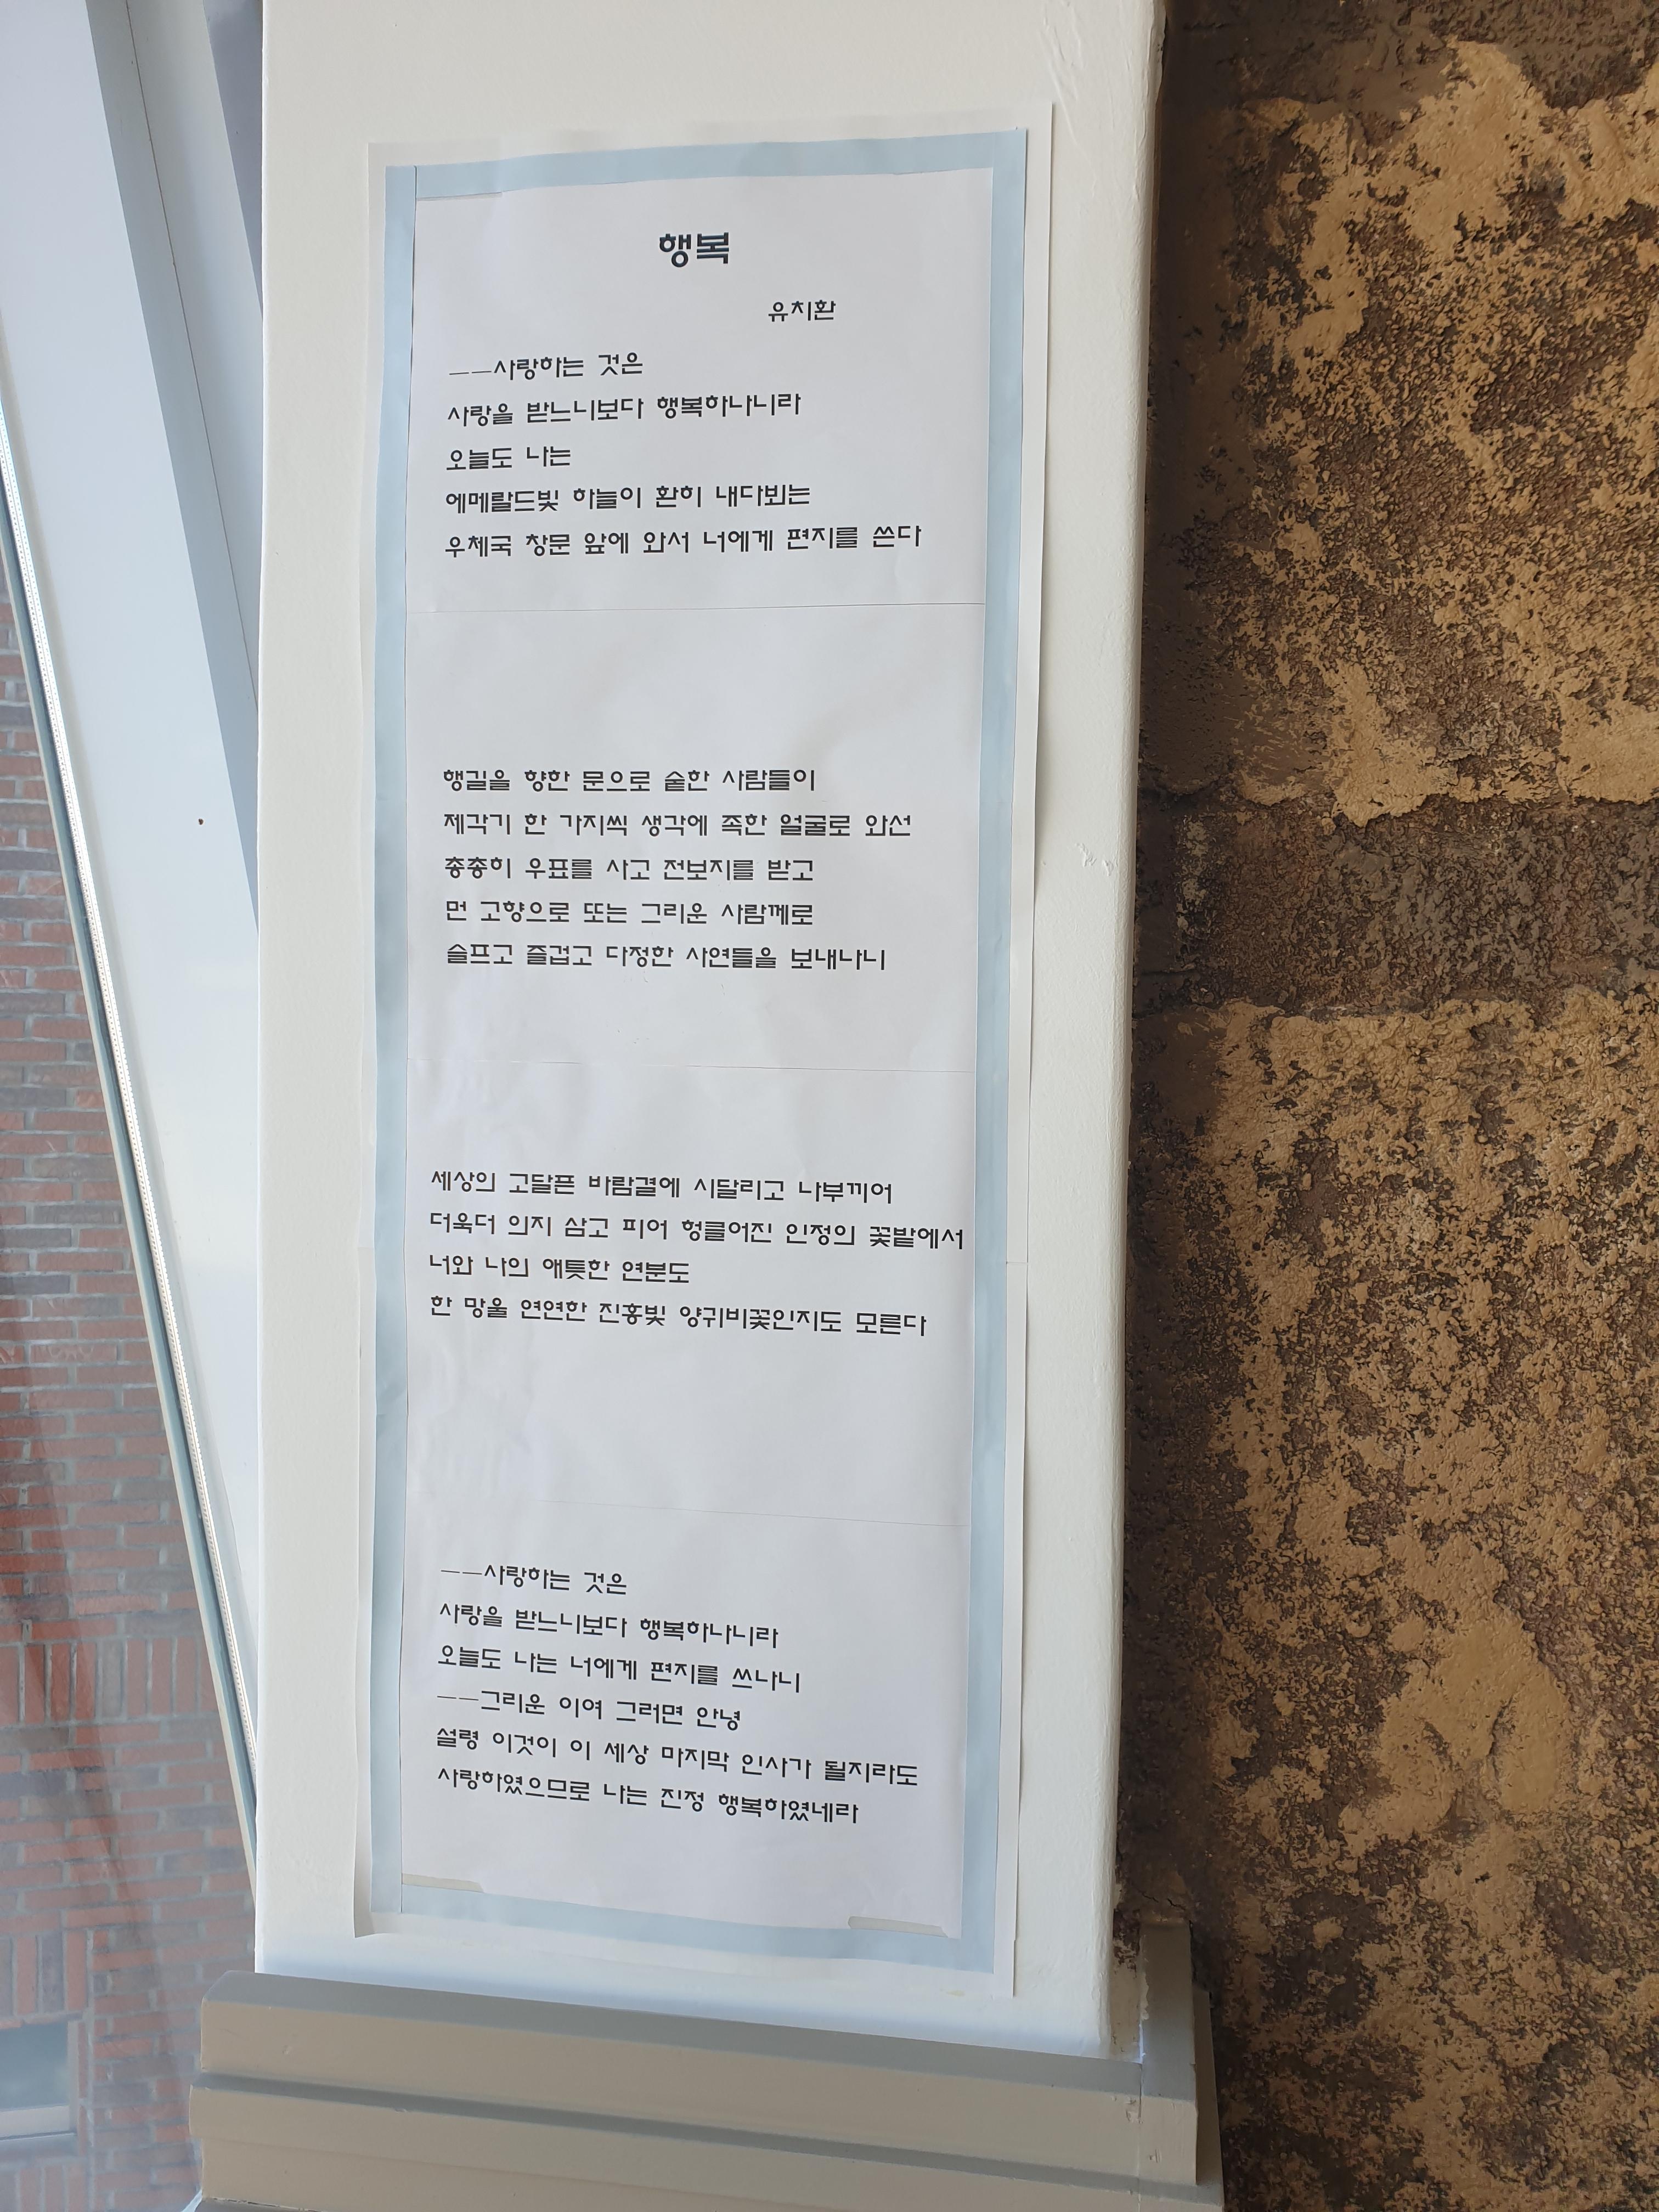 행복
유치환
──사랑하는 것은
사랑을 받느니보다 행복하나니라
오늘도 나는
에메랄드빛 하늘이 환히 내다뵈는
우체국 창문 앞에 와서 너에게 편지를 쓴다
행길을 향한 문으로 숱한 사람들이
제각기 한 가지씩 생각에 족한 얼굴로 와선
총총히 우표를 사고 전보지를 받고
먼 고향으로 또는 그리운 사람께로
슬프고 즐겁고 다정한 사연들을 보내나니
세상의 고달픈 바람결에 시달리고 나부끼어
더욱더 의지 삼고 피어 헝클어진 인정의 꽃밭에서
너와 나의 애틋한 연분도
한 망울 연연한 진홍빛 양귀비꽃인지도 모른다
──사랑하는 것은
사랑을 받느니보다 행복하나니라
오늘도 나는 너에게 편지를 쓰나니
──그리운 이여 그러면 안녕
설령 이것이 이 세상 마지막 인사가 될지라도
사랑하였으므로 나는 진정 행복하였네라